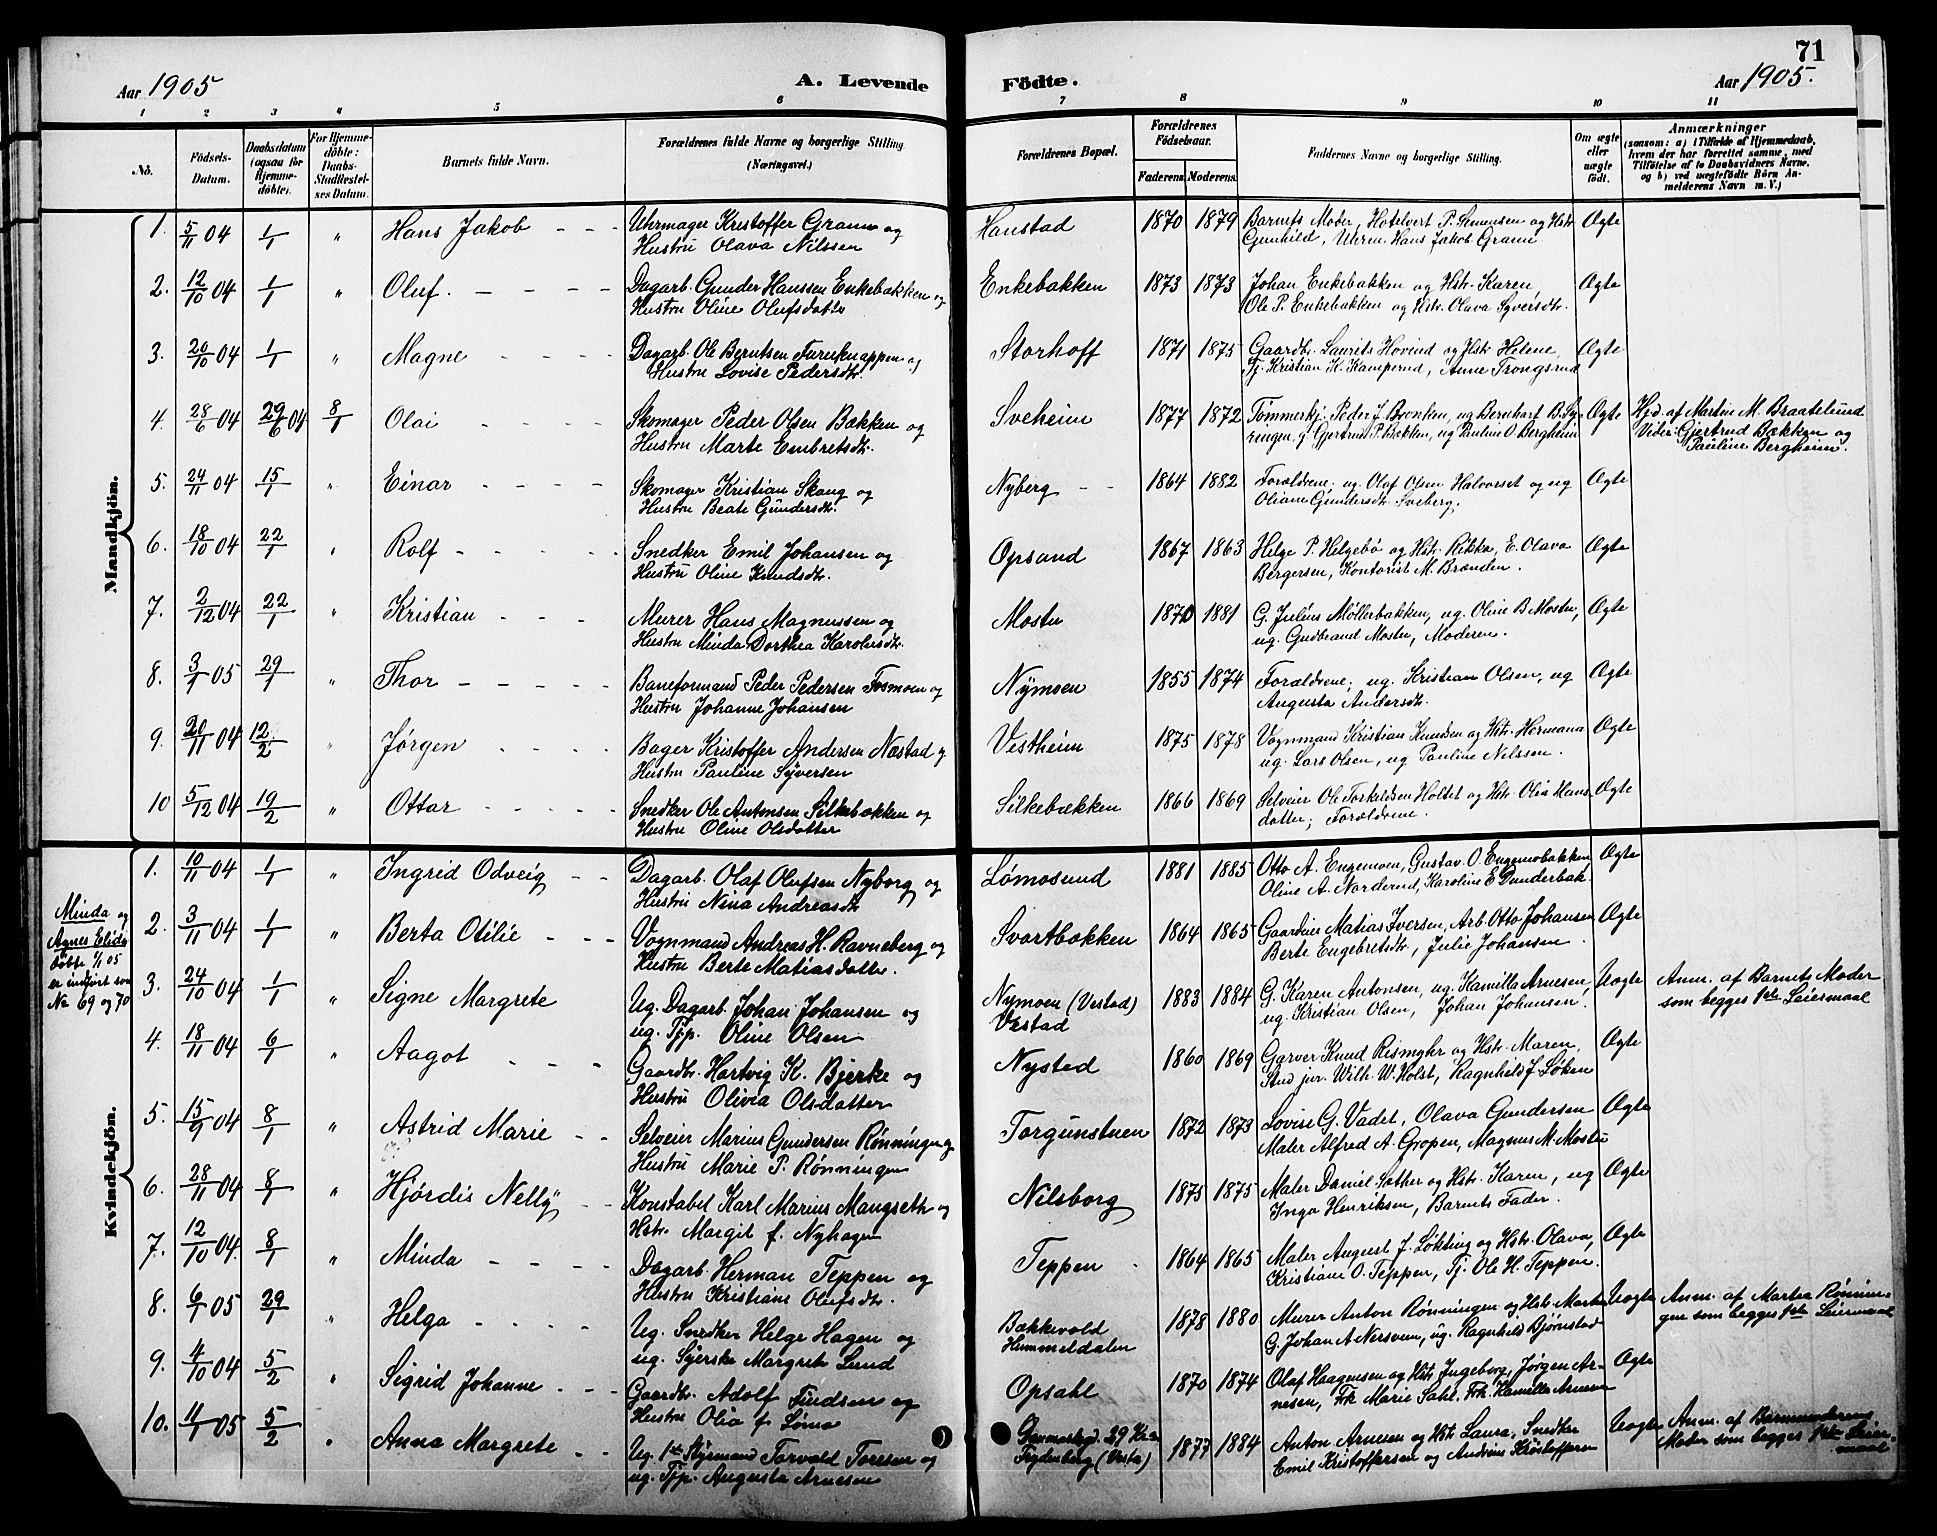 71
Aar 1905
A. Levende
Fødte.
Aar 1905.
1 2 3 4 5 6 7 8 9 10 11
No.
Födsels-
Datum.
Daabsdatum
(ogsaa for
Hjemme-
döbte).
For Hjemme-
döbte:
Daabs-
Stadfæstel-
ses Datum.
Barnets fulde Navn.
Forældrenes fulde Navne og borgerlige Stilling
(Næringsvei.)
Forældrenes Bopæl.
Forældrenes
Födselsaar.
Faderens. Moderens.
Faddernes Navne og borgerlige Stilling.
Om ægte
eller
uægte
født.
Anmærkninger
(saasom: a) i Tilfælde af Hjemmedaab,
hvem der har forrettet samme, med
Tilföielse af to Daabsvidners Navne,
og b) ved uægtefödte Börn An-
melderens Navn m. V.)
Mandkjön.
1. 5/11 04 1/1 " Hans Jakob Uhrmager Kristoffer Gram og Hanstad 1870 1879 Barnets Moder, Hotelvert P. Simensen og Hstr Ægte
Hustru Olava Nilssen Gunhild, Uhrm. Hans Jakob Gram
2. 12/10 04 1/1 " Oluf. Dagarb. Gunder Hanssen Enkebakken og Enkebakken 1873 1873 Johan Enkebakken og Hstr. Karen, Ægte
Hustru Oline Olufsdatter Ole P. Enkebakken og Hstr. Olava Syversdtr.
3. 20/10 04 1/1 " Magne Dagarb. Ole Berntsen Furuknappen og Storhoff 1871 1875 Gaardbr. Laurits Hovind og Hstr Helene, Ægte
Hustru Lovise Pedersdtr. Tj. Kristian K. Kamperud, Anne Trongsrud
4. 28/6 04 29/6 04 8/1 Olai Skomager Peder Olsen Bækken og Sveheim 1877 1872 Tømmerkj. Peder J. Bronken, ug Bernhart B. Sy- Ægte Hjd. af Martine M. Braatelund
Hustru Marte Embretsdtr. g. Gjertrud P. Bækken, ug Pauline O. Bergheim Vidner: Gjertrud Bækken og
Pauline Bergheim.
5. 24/11 04 15/1 " Einar Skomager Kristian Skaug og Nyberg 1864 1882 Forældrene; ug. Olaf Olsen Halvorset og ug Ægte
Hustru Beate Gundersdtr. Oliane Gundersdtr. Sveberg.
6. 18/10 04 22/1 " Rolf Snedker Emil Johansen og Opsand 1867 1863 Helge P. Helgebö og Hstr. Rikka, E. Olava Ægte
Hustru Oline Knudsdtr. Bergersen, Kontorist M. Brænden.
7. 2/12 04 22/1 " Kristian Murer Hans Magnussen og Mostu 1870 1881 G. Julius Møllerbakken, ug. Oline B. Mostu, Ægte
Hustru Minda Dorthea Karolusdtr. ug. Gudbrand Mostu, Moderen.
8. 3/1 05 29/1 " Thor Baneformand Peder Pedersen Fosmoen og Nymoen 1855 1874 Forældrene; ug. Kristian Olsen, ug Ægte
Hustru Johanne Johansen Augusta Andersdtr.
9. 20/11 04 12/2 " Jørgen Bager Kristoffer Andersen Næstad og Vestheim 1875 1878 Vognmand Kristian Knudsen og Hstr. Hermana Ægte
Hustru Pauline Syversen ug. Lars Olsen, ug Pauline Nilssen.
10 5/12 04 19/2 " Ottar Snedker Ole Antonsen Silkebækken og Silkebækken 1866 1869 Selveier Ole Torkeldsen Holtet og Hstr. Olia Hans Ægte
Hustru Oline Olsdatter datter; Forældrene.
Kvindekjön.
Minda og
Agnes Elida
døbte 1/1 05
er indført som
No 69 og 70
1. 10/11 04 1/1 " Ingrid Odveig Dagarb. Olaf Olufsen Nyborg og Lömosund 1881 1885 Otto A. Engemoen, Gustav O. Engemobakken Ægte
Hustru Nina Andreasdtr Oline A. Norderud, Karoline E Dunderbak.
2. 3/11 04 1/1 " Berta Otilie Vognmand Andreas H. Ravneberg og Svartbækken 1864 1865 Gaardeier Matias Iversen, Arb. Otto Johansen Ægte
Hustru Berte Matiasdatter. Berte Engebretsdtr, Julie Johansen.
3. 24/10 04 1/1 " Signe Margrete Ug. Dagarb. Johan Johansen og Nymoen (Vestad) 1883 1884 G. Karen Antonsen, ug. Kamilla Arnesen, Uægte Anm. af Barnets Moder
ug. Tjp. Oline Olsen Vestad ug. Kristian Olsen, Johan Johansen. som begges 1ste Leiermaal
4. 18/11 04 6/1 " Aagot Gaardbr. Hartvig K. Bjerke og Nystad 1860 1869 Garver Knud Rismyhr og Hstr. Maren, Ægte
Hustru Olivia Olsdatter Stud jur. Wilh. W. Holst, Ragnhild J. Løken
5. 15/9 04 8/1 " Astrid Marie Selveier Marius Gundersen Rønningen og Torgunstuen 1872 1873 Lovise G. Vadet, Olava Gundersen Ægte
Hustru Marie P. Rønningen Maler Alfred A. Gropen, Magnus M. Mostu
6. 28/11 04 8/1 " Hjördis Nelly Konstabel Karl Marius Mangseth og Nilsborg 1875 1875 Maler Daniel Sæther og Hstr. Karen, ug Ægte
Hstr. Margit f. Nyhagen Inga Henriksen, Barnets Fader.
7. 12/10 04. 8/1 " Minda Dagarb. Herman Teppen og Teppen 1864 1865 Maler August J. Løkting og Hstr. Olava, Ægte
Hustru Kristiane Olufsdtr. Kristiane O. Teppen, Tj. Ole H. Teppen.
8. 6/1 05 29/1 " Helga Ug. Snedker Helge Hagen og Bækkevold 1878 1880 Murer Anton Rønningen og Hstr Marte Uægte Anm. af Martea Rønnin-
ug. Syerske Margrete Lund Hummeldalen G. Johan A Nersveen, ug. Ragnhild Bjørnstad gen som begges 1ste Leiermaal
9. 4/10 04 5/2 " Sigrid Johanne Gaardbr. Adolf Tundsen og Opsahl 1870 1874 Olaf Haagensen og Hstr Ingeborg, Jørgen Ar- Ægte
Hustru Olia f. Lømo nesen, Frk Marie Sahl, Frk. Kamilla Arnesen
10. 4/1 05 5/2 " Anna Margrete Ug. 1st Styrmand Torvald Toresen og 1877 1884 Anton Arnesen og Hstr Laura, Snedker Uægte Anm. af Barnmoderens
ug. Tjp. Augusta Arnesen Frydenberg (Vestad) Emil Kristoffersen og Andrine Kristoffersen Moder som begges 1ste Leier-
maal